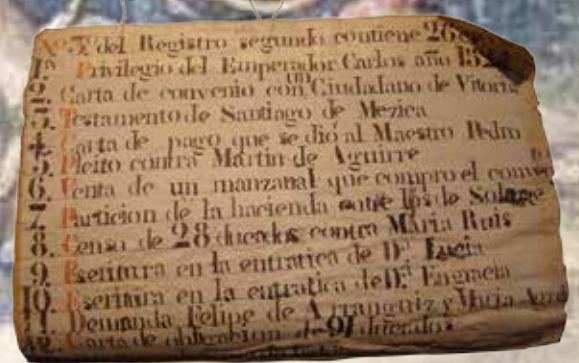 Nº 3º del Registro segundo contiene 26
1ª Privilegio del Emperador Carlos año
2. Carta de convenio con un Ciudadano de Vitoria
3. Testamento de Santiago de Mezica
4. Carta de pago que se dió al Maestro Pedro
5. Pleito contra Martin de Aguirre
6. Venta de un manzanal que compro el
7. Particion de la hacienda entre los de
8. Censo de 28 ducados contra Maria Ruis
9. Escritura en la entratica de Dª Lucia
10. Escritura en la entratica de Dª Engracia
11. Demanda Felipe de Arranguiz y Maria
12. Carta de obligacion de 91 ducados